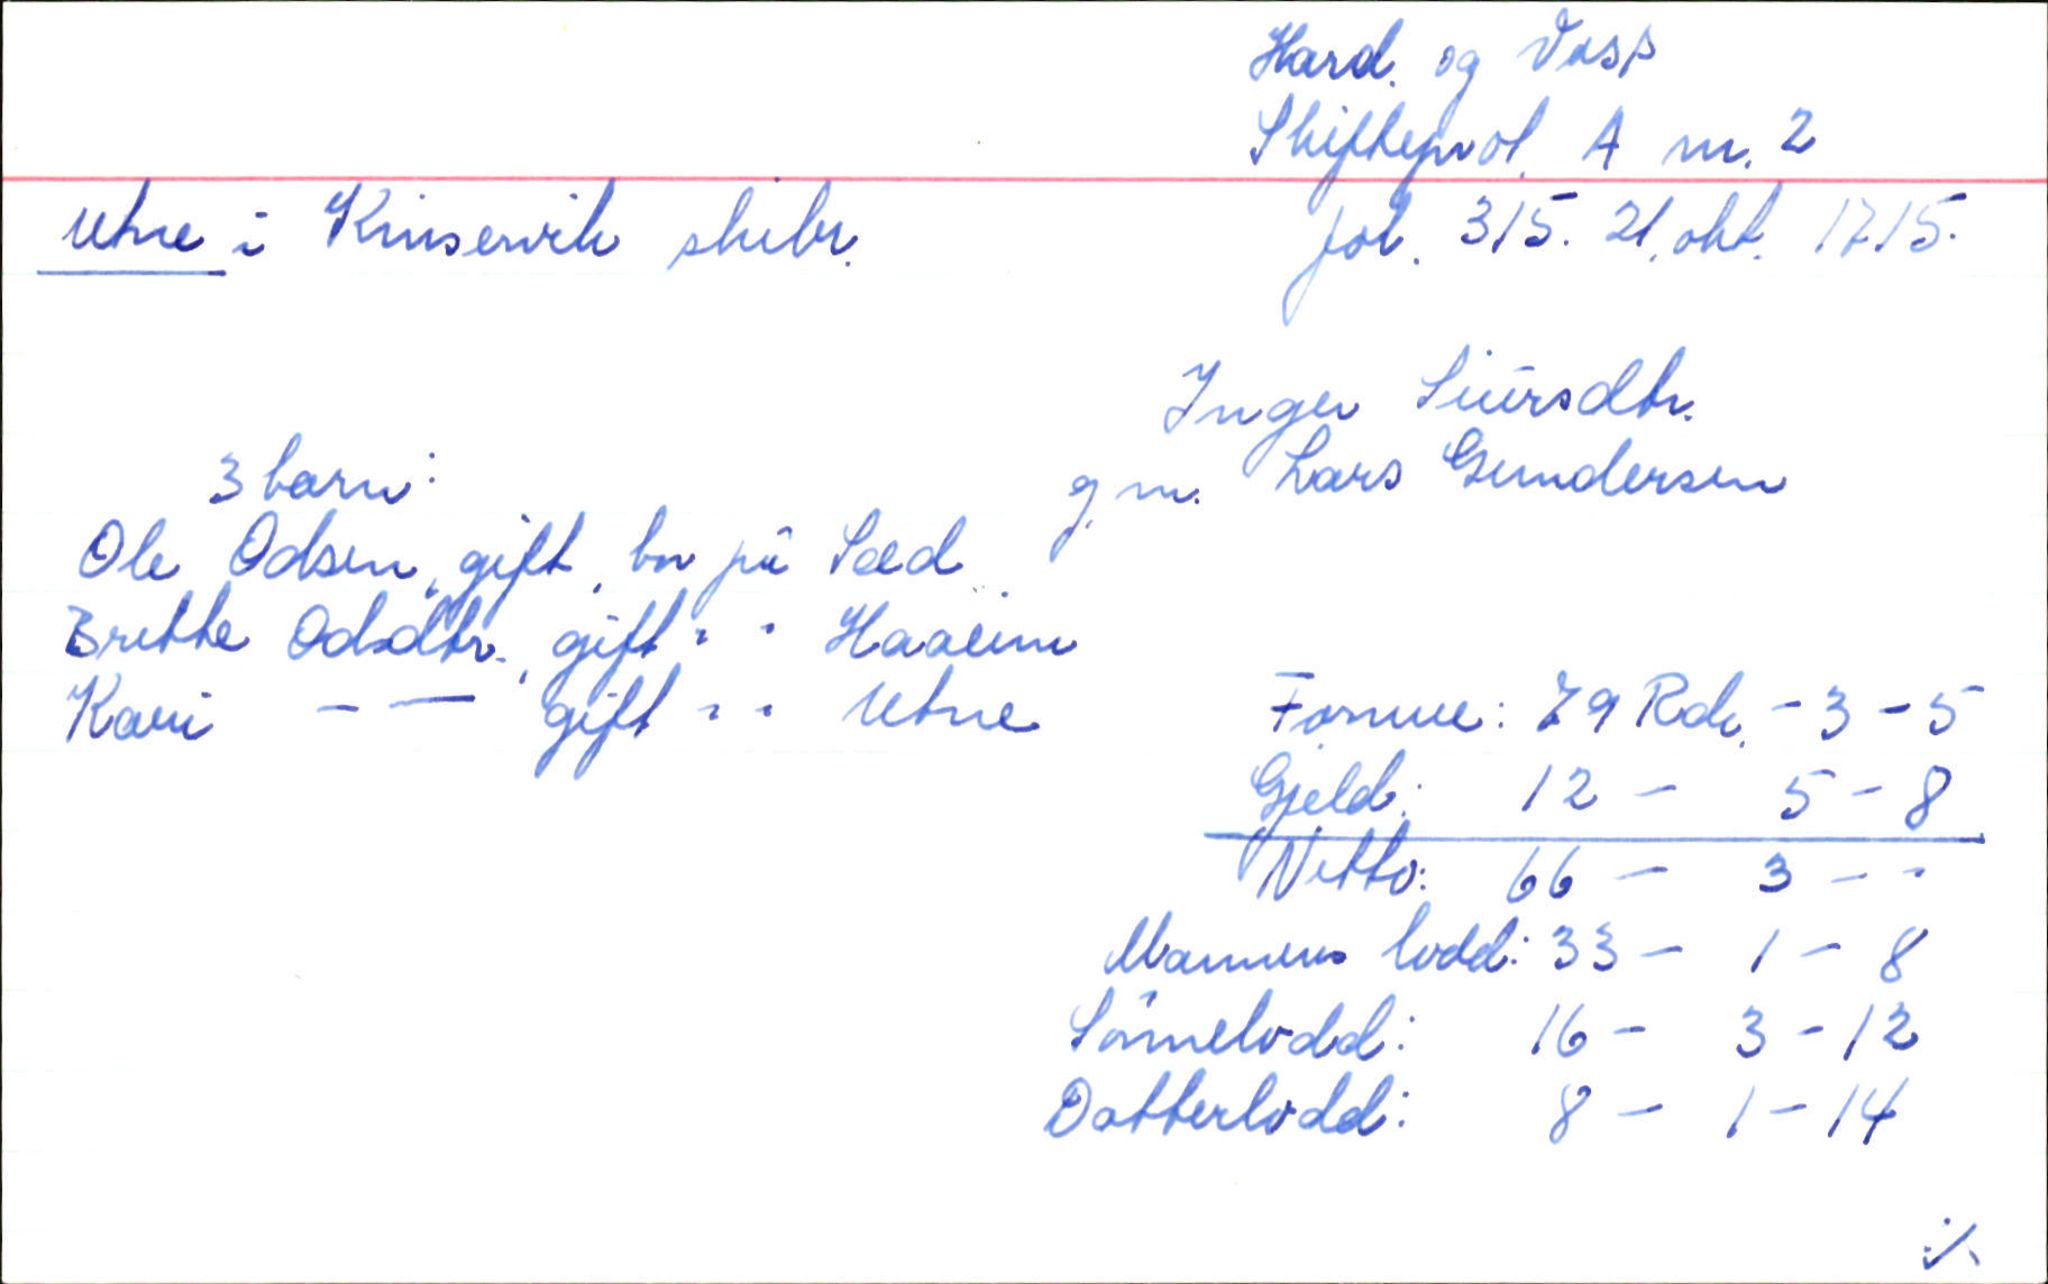 Hard. og Voss
Skifteprot. A nr. 2
Utne i Kinservik skibr.
fol. 315. 21. okt. 1715.
Inger Siürsdtr.
g. m. Lars Gundersen
3 barn:
Ole Odsen, gift, bor på Sæd
Brette Odsdtr., gift " " Haaeim
Kari - — gift " " Utne
Formue: 79 Rdr. - 3 - 5
Gjeld: 12 - 5 - 8
Netto: 66 - 3 - -
Mannens lodd: 33 - 1 - 8
Sönnelodd: 16 - 3 - 12
Datterlodd: 8 - 1 - 14
./.